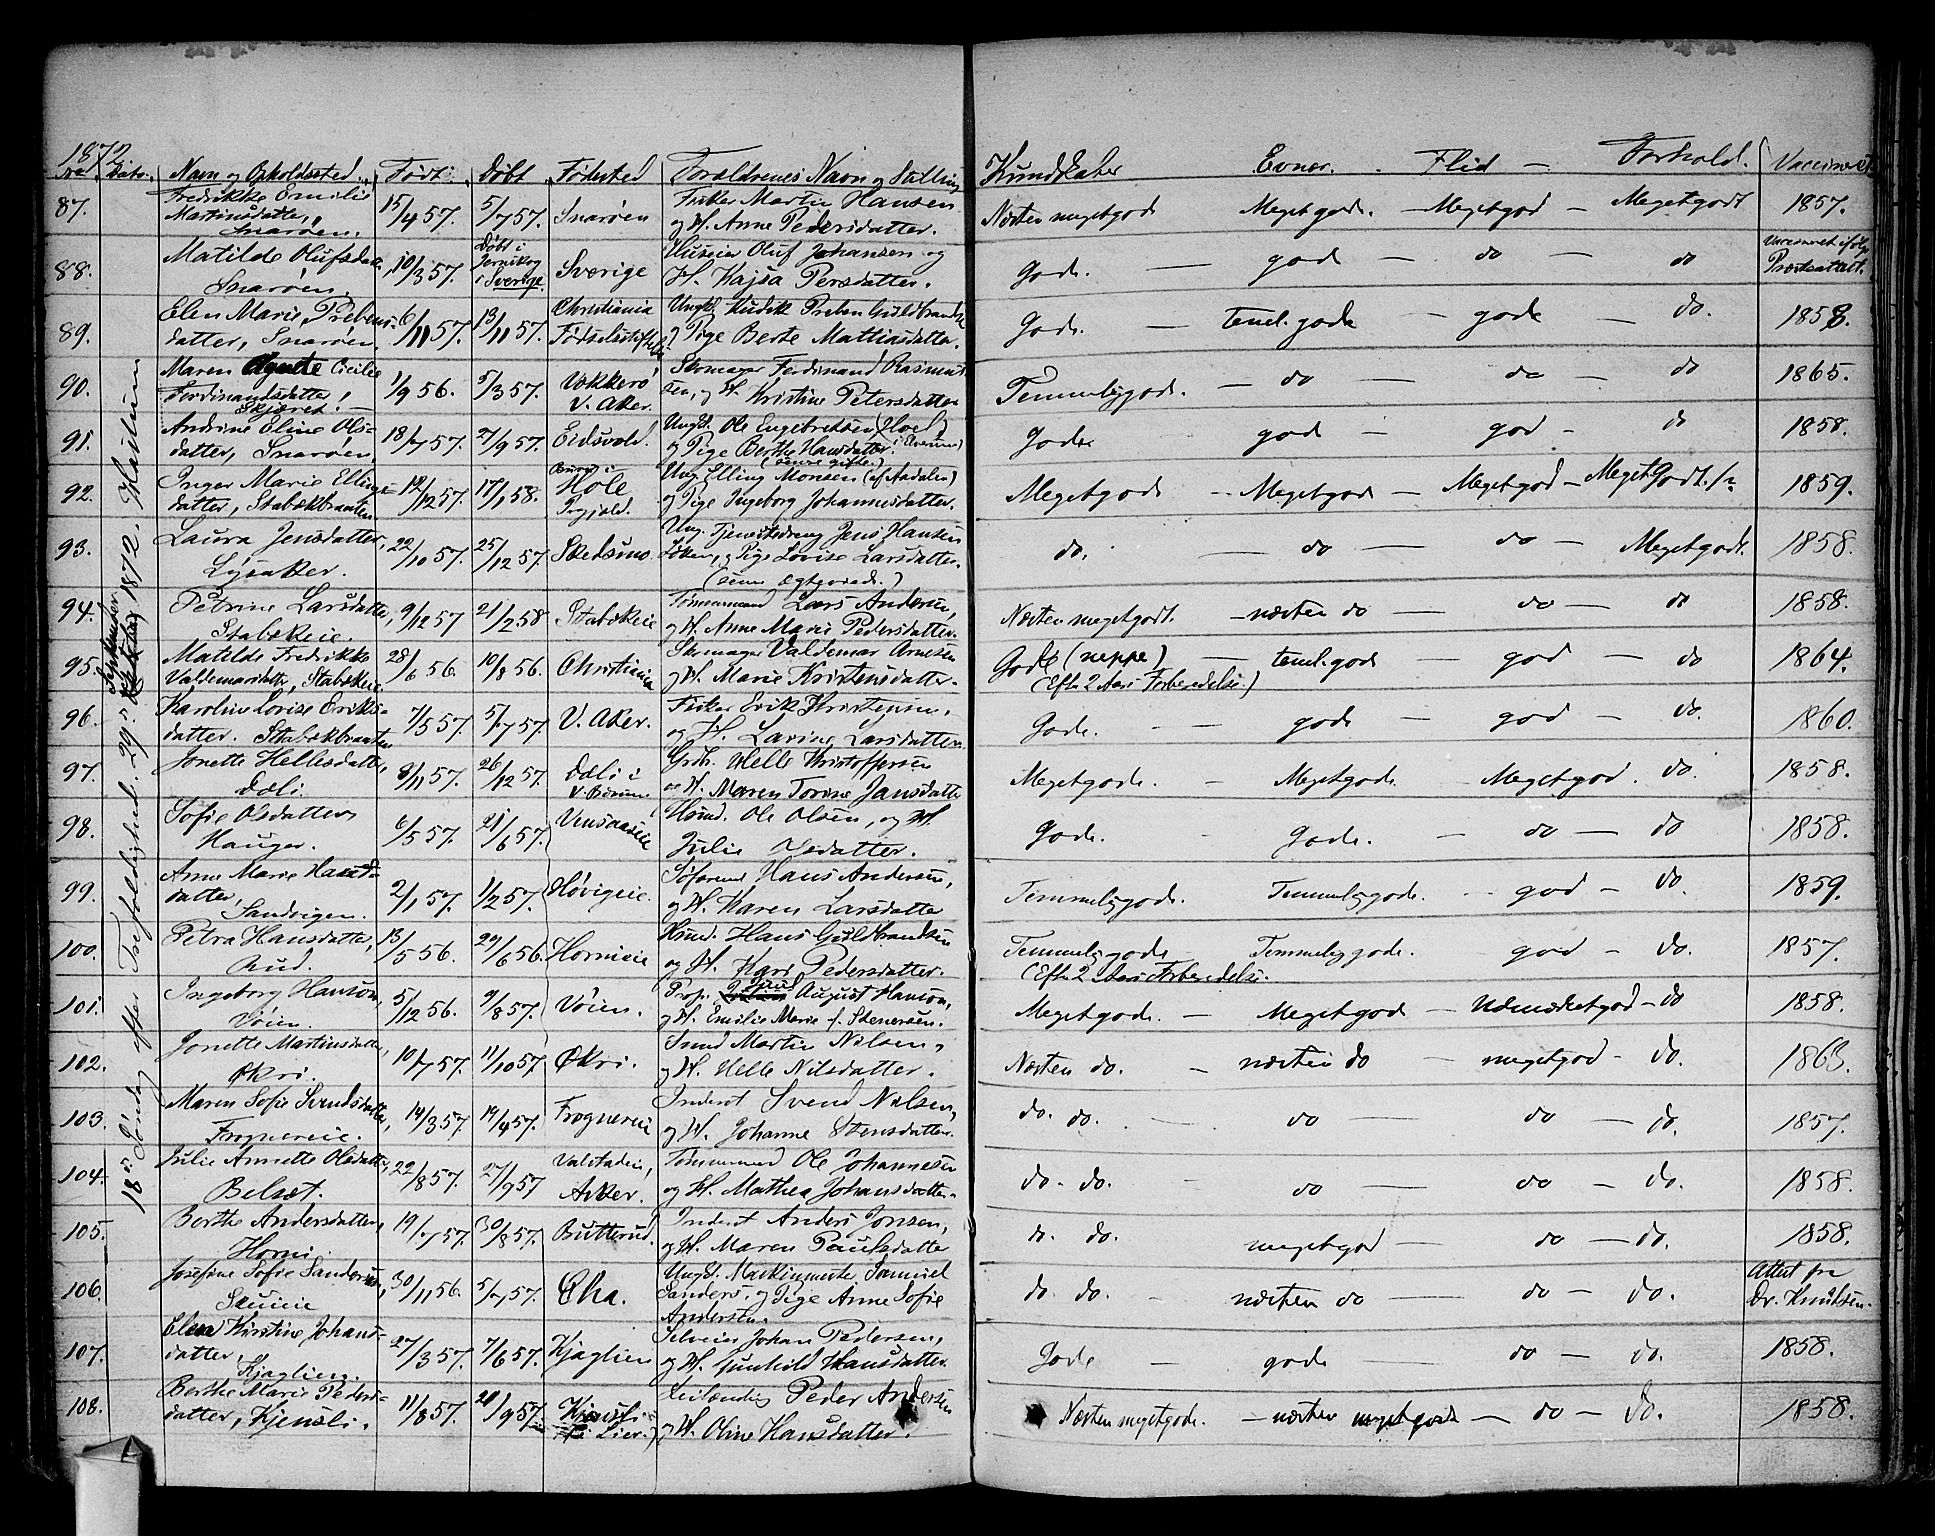 1872
No Dato. Navn og Opholdssted. Født. Døbt Fødested Forældrenes Navn og Stilling Kundskaber Evner. Flid — Forhold. Vaccineret
18de Søndag efter Trefoldighed. 29de September 1872. Haslum
87. Fredrikke Emilie Martinsdatter, Snarøen. 15/4 57. 5/7 57. Snarøen Fisker Martin Hansen og H. Anne Pedersdatter. Næsten megetgode Megetgode. — Megetgod — Megetgodt 1857.
88. Matilde Olufsdatter, Snarøen. 10/3 57. Døbt i Jernskog i Sverige. Sverige Huseier Oluf Johansen og H. Kajsa Persdatter. Gode. — gode — do — do Vaccineret ifølge Præsteattest.
89. Elen Marie Prebensdatter, Snarøen. 6/11 57. 13/11 57. Christiania Fødselsstiftelse Ungkl. Kudsk Preben Guldbrandsen og Pige Berte Mathiasdatter. Gode. — teml. gode — gode — do. 1858.
90. Maren Cicilie Ferdinandsdatter, Skjæret. — 1/9 56. 5/3 57. Vækkerø V. Aker. Skomager Ferdinand Rasmussen, og H. Kristine Petersdatter Temmeliggode. — do — do — do 1865.
91. Andrine Eline Olsdatter, Snarøen 18/7 57. 7/9 57. Eidsvold. Ungk. Ole Engebretsen (Hoel) og Pige Berthe Hansdatter. (i Elverum) (senere gifte.) Gode — gode — god — do 1858.
92. Inger Marie Ellingsdatter, Stabækbraaten 12/12 57. 17/1 58. Hole Prgjæld. Ung. Elling Monsen (af Aadalen) og Pige Ingeborg Johannesdatter. Megetgode — Megetgode — Megetgod — Megetgodt. 1859.
93. Laura Jensdatter, Lysaker. 22/10 57. 25/12 57. Skedsmo Ung. Tjenestedreng Jens Hansen og Pige Lovise Larsdatter. (senere Ægteviede.) do. — do — do — Megetgodt. 1858.
94. Petrine Larsdatter, Stabækeie. 9/12 57 21/2 58 Stabækeie Tømmermand Lars Andersen, og H. Anne Marie Pedersdatter. Næsten megetgodt. — næsten do — do — do 1858.
95. Matilde Fredrikke Valdemarsdatter, Stabækeie 28/6 56. 10/8 56. Christiania Skomager Valdemar Arnesen og H. Marie Kristensdatter. Gode (neppe) — teml. gode — god — do 1864.
(Efter 2 Aars Forberedelse.)
96. Karoline Lovise Eriksdatter. Stabækbraaten 7/5 57. 5/7 57. V. Aker. Fisker Erik Kristensen. og H. Lavine Larsdatter. Gode. — gode — god — do. 1860.
97. Jonette Hellesdatter, Dæli. 8/11 57. 26/12 57. Dæli i V. Bærum Grdbr. Helle Kristoffersen og H. Maren Torine Jansdatter Megetgode. — Megetgode. Megetgod. do. 1858.
98. Sofie Olsdatter Hauger. 6/5 57. 21/6 57. Husmd. Ole Olsen, og H. Julie Gode. Gode. — do — do 1858.
99. Anne Marie Hansdatter, Sandvigen. 2/1 57. 1/2 57. Høvigeie. Søfarende Hans Andersen, og H. Karen Larsdatter Temmeliggode. Temmeliggode. — god — do. 1859.
100. Petra Hansdatter, Rud. 13/5 56. 29/6 56. Hornieie Husmd. Hans Guldbrandsen og H. Kari Pedersdatter. Temmeliggode Temmeliggode. god — do. 1857.
(Efter 2 Aars Forberedelse.
101. Ingeborg Hanson, Vøien. 5/12 56. 9/8 57. Vøien. Prop. August Hanson, og H. Emilie Marie f. Stenersen. Megetgode. — Megetgode — Udmærketgod — do 1858.
102. Jonette Martinsdatter, Økri. 10/7 57. 11/10 57. Økri. Smed Martin Nilsen, og H. Helle Nilsdatter. Næsten do. — næsten do — megetgod — do. 1863.
103. Maren Sofie Svendsdatter, Frognereie. 14/3 57. 19/4 57. Frognereie Inderst Svend Nilsen, og H. Johanne Stensdatter. do. do. — do — do — do. 1857.
104. Julie Annette Olsdatter, Belset. 22/8 57. 27/9 57 Valstadeie, Asker. Tømmermand Ole Johannesen og H. Mathea Johansdatter. do. do. — do — do — do. 1858.
105. Berthe Andersdatter, Horni. 19/7 57. 30/8 57. Butterud. Inderst Anders Jonsen, og H. Maren Paulsdatter do. do. megetgod — do — do. 1858.
106. Josefine Sofie Sandersen, Skuieie 30/11 56. 5/7 57. Cha. Ungk. Maskinmester Samuel Sanders. og Pige Anne Sofie Andersen. do. do. — næsten do — do — do. Attest fra Dr. Knutsen.
107. Elen Kirstine Johansdatter, Kjaglien. 27/3 57. 7/6 57. Kjaglien Selveier Johan Pedersen, og H. Gunhild Hansdatter. Gode — gode — do — do. 1858.
108. Berthe Marie Pedersdatter, Kjensli. 11/8 57. 20/9 57. Kjensli i Lier. Leilænding Peder Andersen og H. Oline Hansdatter. Næsten megetgode. — næsten megetgode — do — do. 1858.